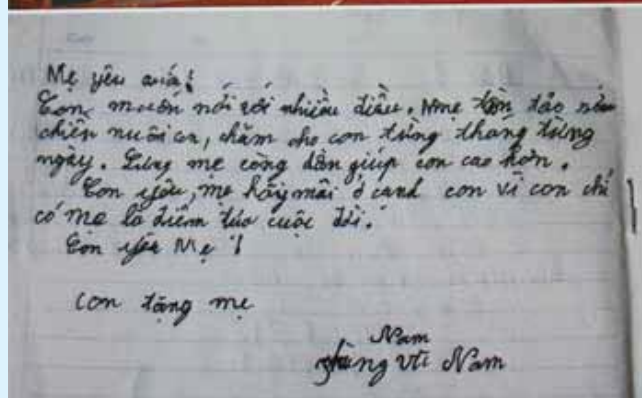 Mẹ yêu quá!
Con muốn nói rất nhiều điều. Mẹ tần tảo sớm
chiều nuôi con, chăm cho con từng tháng từng
ngày. Lưng mẹ còng dần giúp con cao hơn.
Con yêu, mẹ hãy mãi ở cạnh con vì con chỉ
có mẹ là điểm tựa cuộc đời.
Con yêu Mẹ!
Con tặng mẹ
Nam
Nam